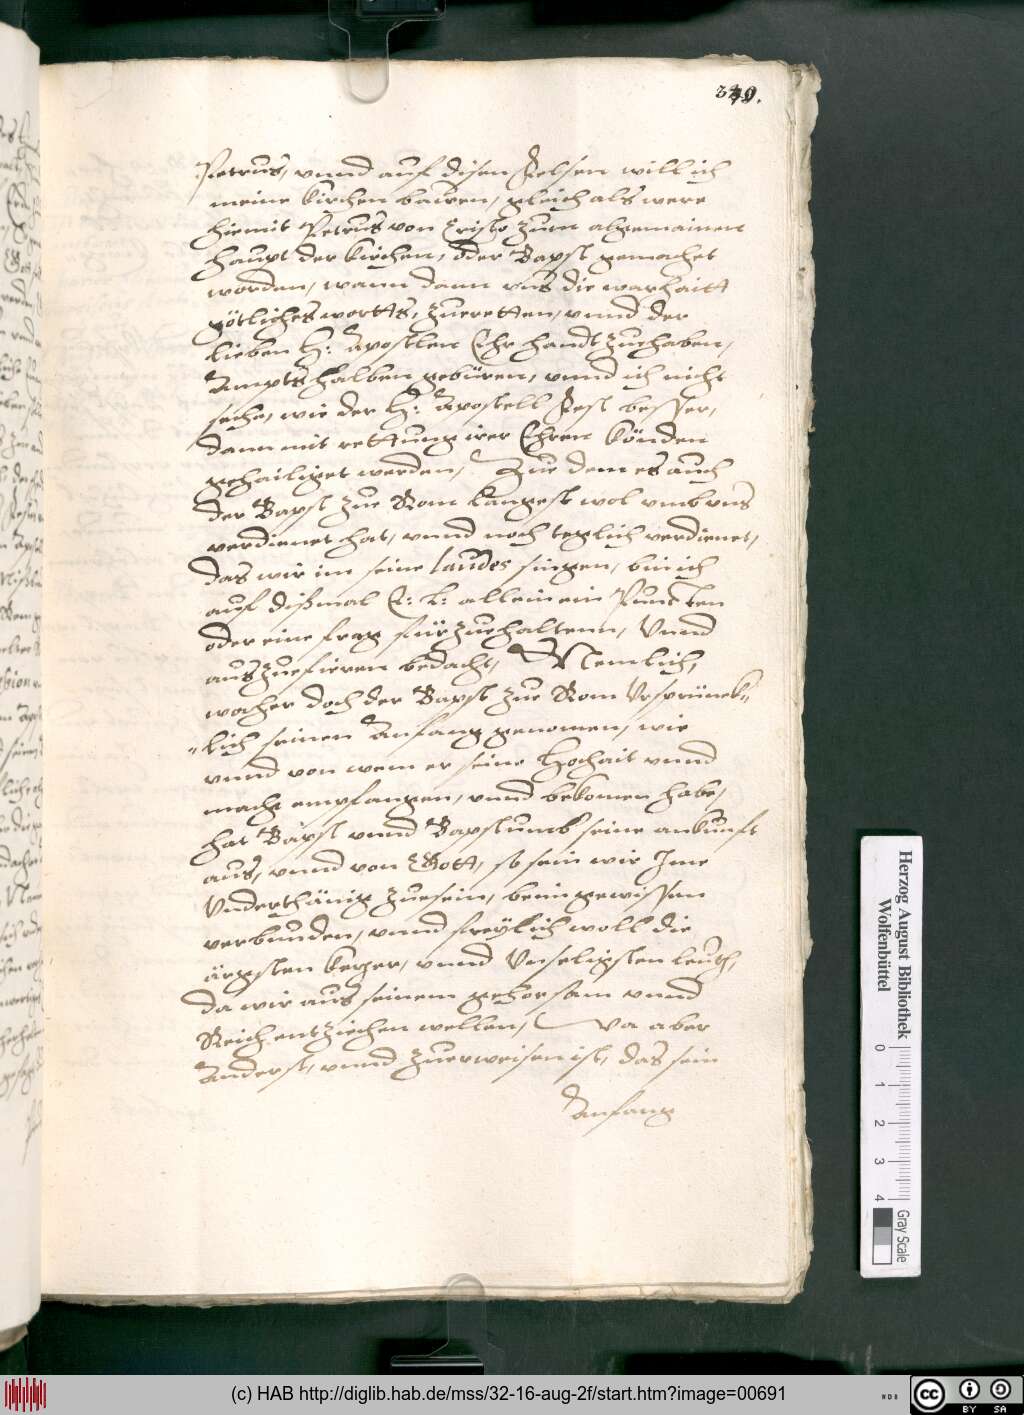 349.
Petrus, vnnd auf disen Felsen will ich
meine Kirchen bawen, gleich als were
hiemit Petrus von Cristo zum algemainen
haupt der Kirchen, oder Bapst gemachet
worden, wann dann vns die warhaitt
götliches wortts, zueretten, vnnd der
lieben H: Apostlen Ehr handtzuehaben,
Ampts halben gebüren, vnnd ich nicht
siehe, wie der H: Apostell Fest besser,
dann mit rettung irer Ehren könden
gehailiget werden, Zue dem es auch
der Bapst zue Rom langest wol vmb vns
verdienet hat, vnnd noch teglich verdienet,
das wir im seine laudes singen, bin ich
auf dißmal E: L: allein ein Puncten
oder eine frag fürzuehaltenn, Vnnd
auszuefieren bedacht, Nemlich,
wocher doch der Bapst zue Rom Vrsprünck„
„lich seinen Anfang genomen, wie
vnnd von wem er seine Hochait vnnd
macht empfangen, vnnd bekomen habe,
hat Bapst vnnd Bapstumb seine ankunft
aus, vnnd von Gott, so sein wir Ime
Vnderthänig zuesein, beim gewissen
verbunden, vnnd freÿlich woll die
ärgsten Ketzer, vnnd Vnseligsten leuth,
da wir aus seinem gehorsam vnnd
Reich entziechen wellen, Da aber
Anderst, vnnd zuerweisen ist, das sein
Anfang
Herzog August Bibliothek
Wolfenbüttel
0 1 2 3 4
Gray Scale
(c) HAB http://diglib.hab.de/mss/32-16-aug-2f/start.htm?image=00691
WDB
cc BY SA